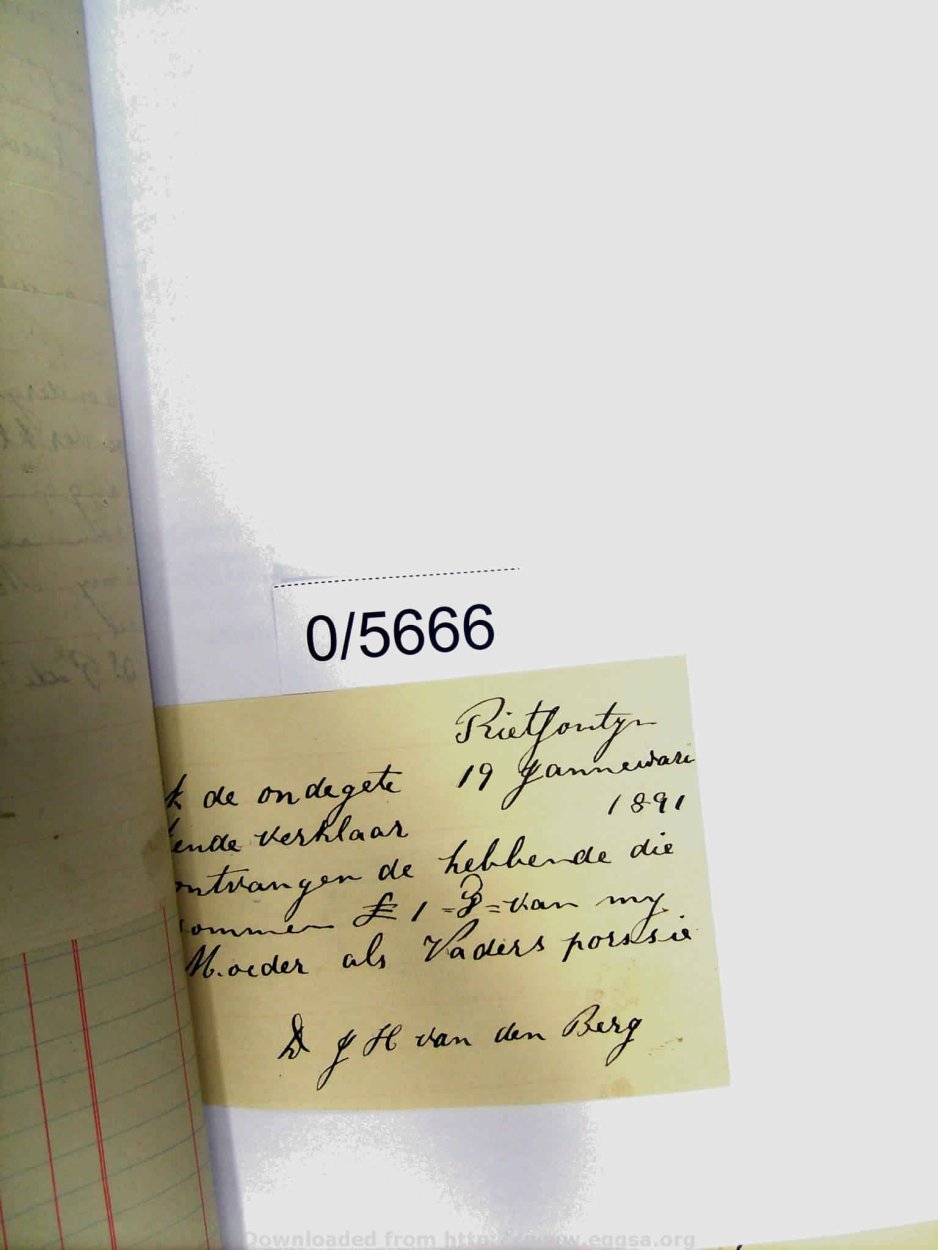 0/5666
Rietfontyn
19 Jannewari
k de ondegete
1891
kende verklaar
ontvangen de hebbende die
sommen £ 1 = van my
Moeder als Vaders porssie
D J H van den Berg
Downloaded from http://www.eggsa.org